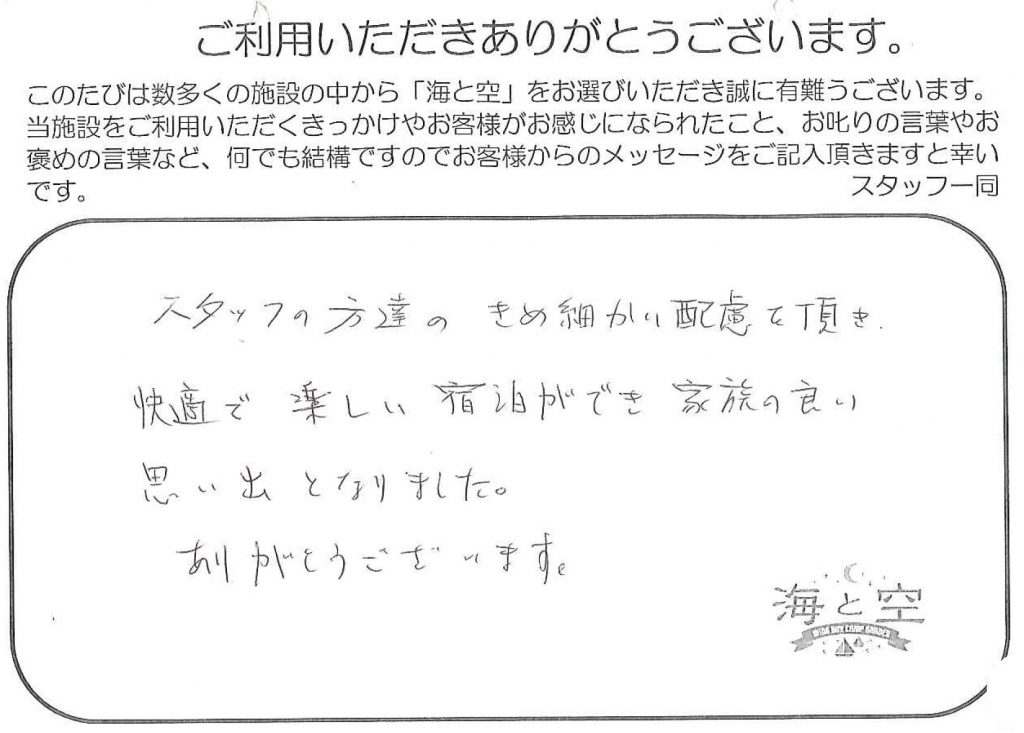 ご利用いただきありがとうございます。
このたびは数多くの施設の中から「海と空」をお選びいただき誠に有難うございます。
当施設をご利用いただくきっかけやお客様がお感じになられたこと、お叱りの言葉やお
褒めの言葉など、何でも結構ですのでお客様からのメッセージをご記入頂きますと幸い
です。
スタッフ一同
スタッフの方達の きめ細かい配慮を頂き
快適で 楽しい 宿泊ができ 家族の良い
思い出 となりました。
ありがとうございます。
海と空